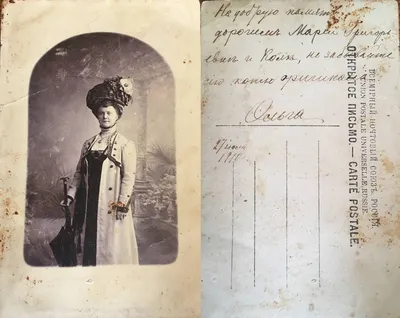 На добрую память
дорогимъ Маріи Григорь
евнѣ и Колѣ, не забывайте
Ольга
ВСЕМІРНЫЙ ПОЧТОВЫЙ СОЮЗЪ. РОССІЯ.
UNION POSTALE UNIVERSELLE. RUSSIE.
ОТКРЫТОЕ ПИСЬМО. — CARTE POSTALE.